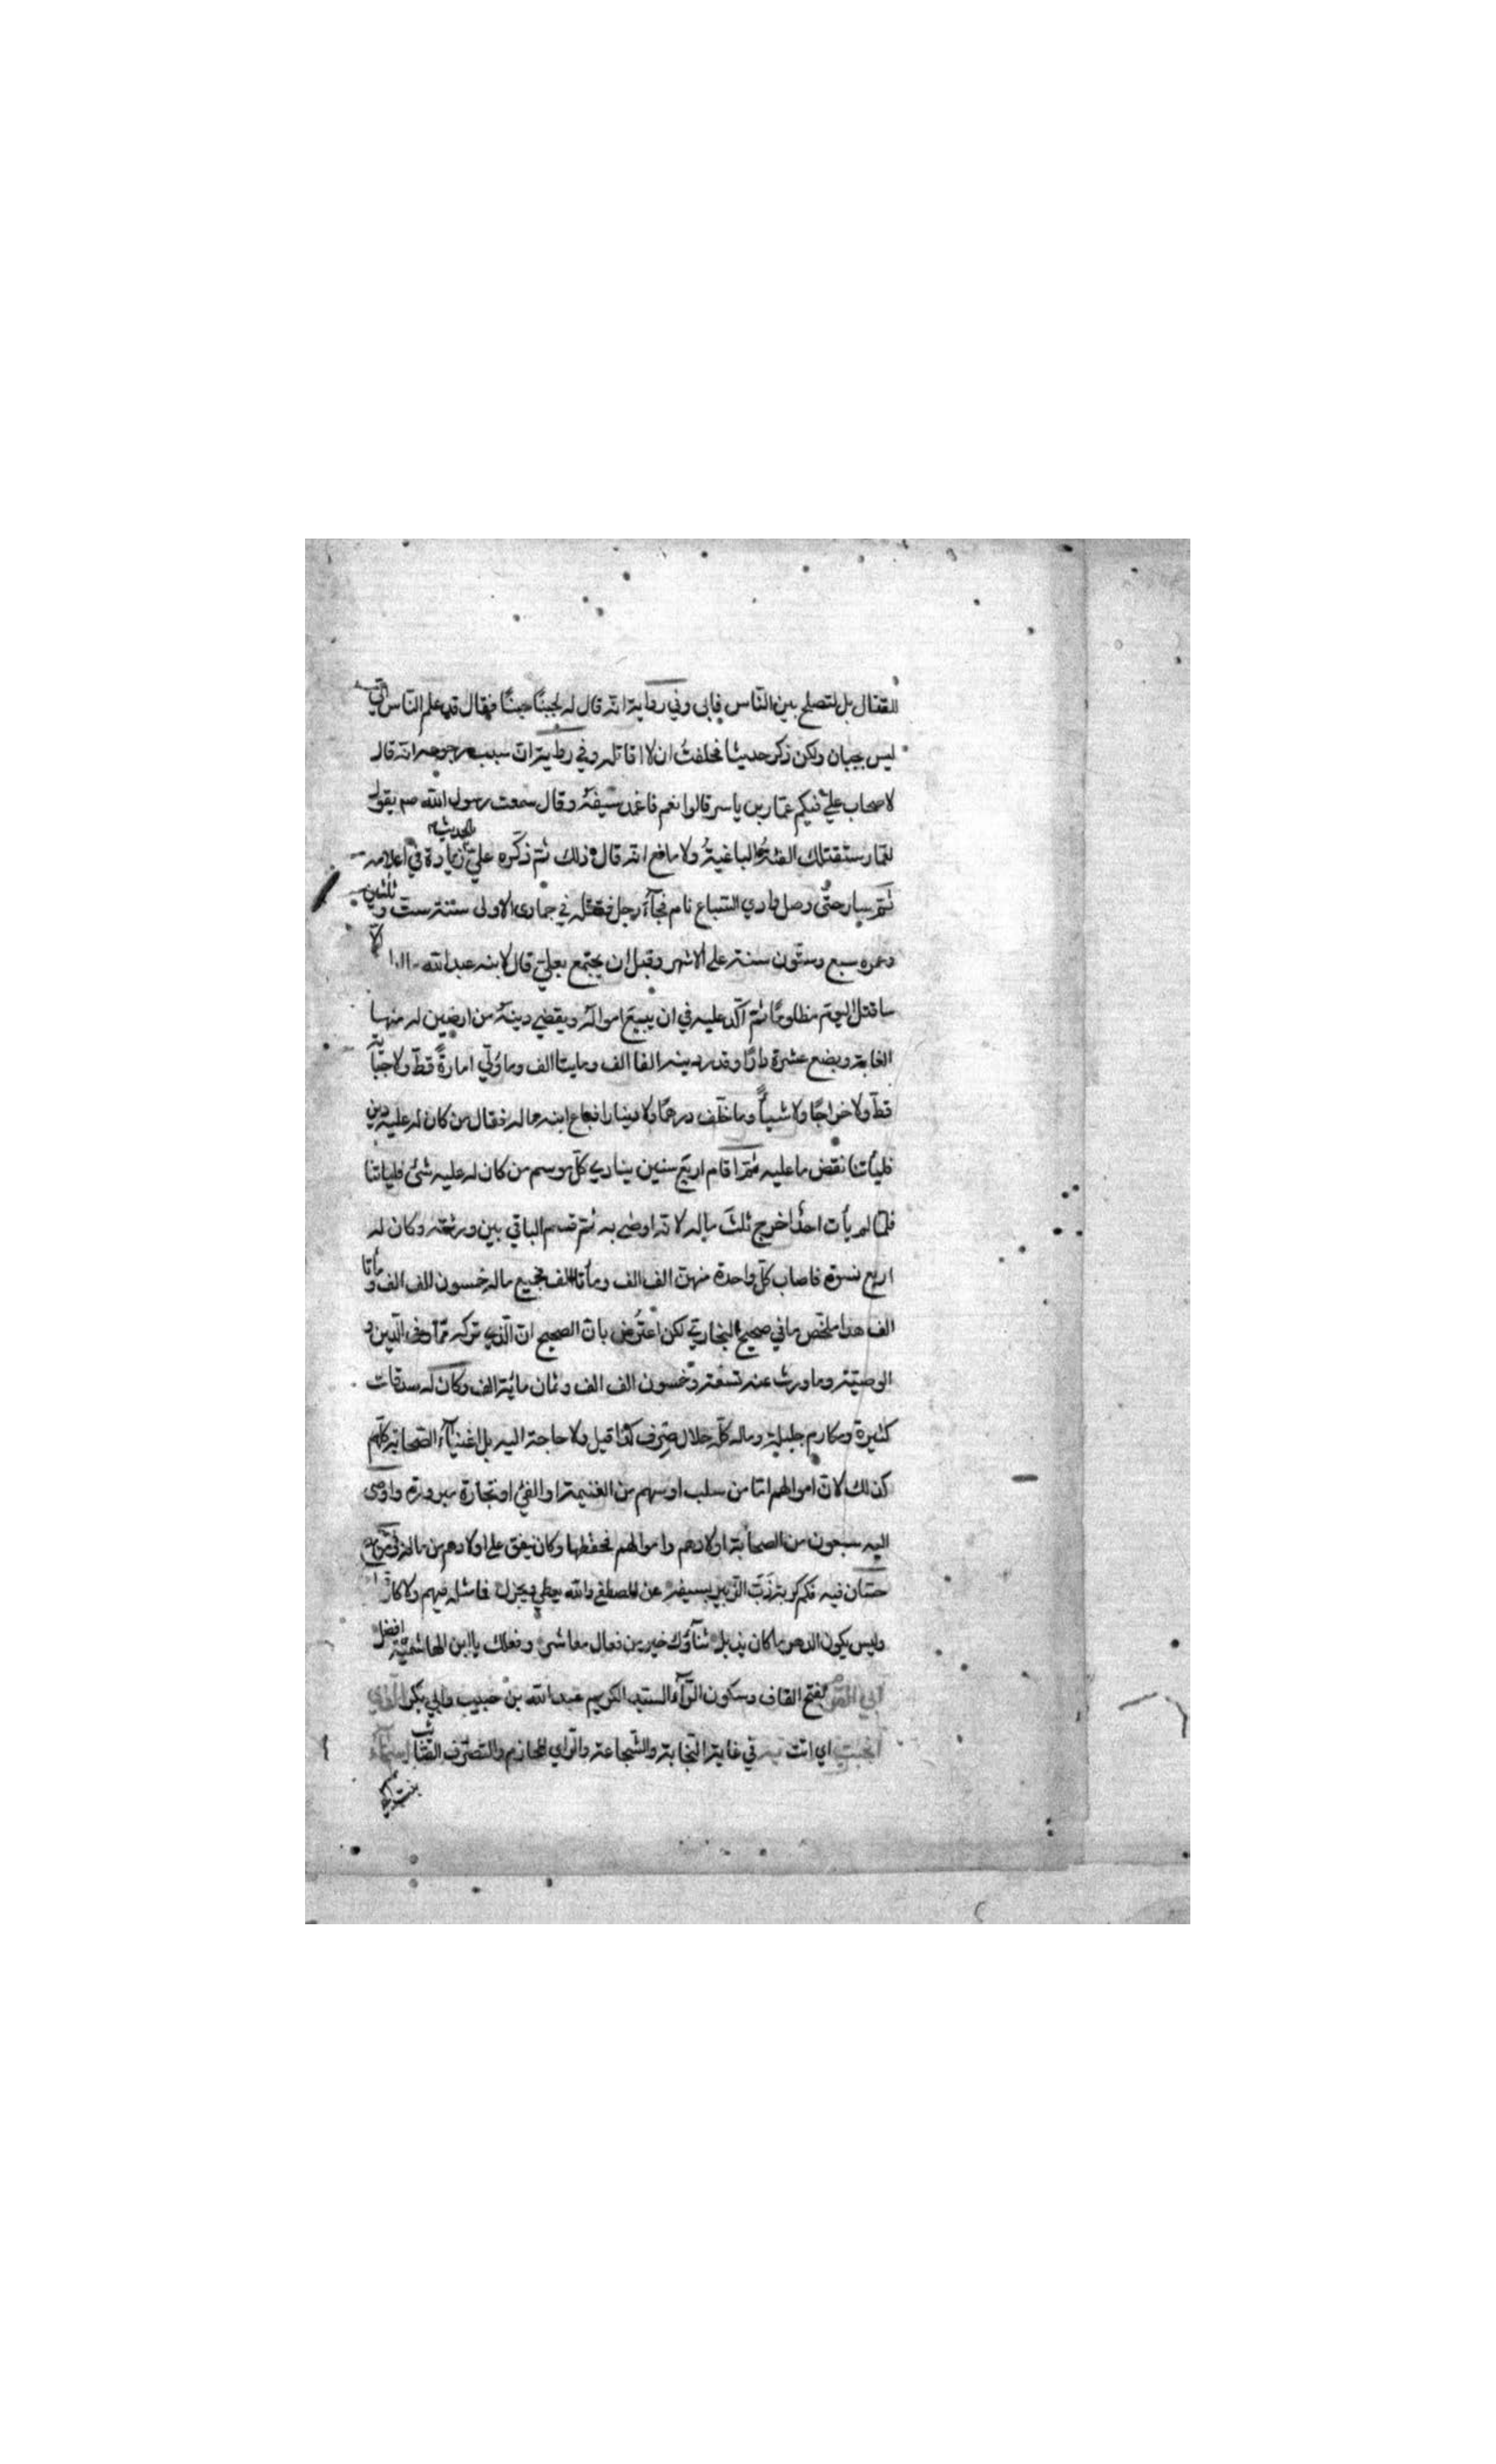 للقتال بل لتصلح بين الناس فابى وفي رواية انه قال له اجبنًا جبنًا فقال قد علم الناس اني
ليس بجبان ولكن ذكر حديثا فحلفت ان لا اقاتله وفي رواية ان سبب رجوعه انه قال
لاصحاب علي افيكم عمار بن ياسر قالوا نعم فاغمد سيفه وقال سمعت رسول الله صم يقول
لعمار ستقتلك الفئة الباغية ولا مانع انه قال ذلك ثم ذكره علي الحديث زيادة في اعلامه
ثم سار حتى وصل وادي السباع نام فجآء رجل فقتله في جمادى الاولى سنة ست وثلثين
وعمره سبع وستون سنة على الاشهر وقبل ان يجتمع بعلي قال لابنه عبد الله الّا
ساقتل اليوم مظلومًا ثم اكّد عليه في ان يبيع امواله ويقضي دينه من ارضين له منها
الغابة وبضع عشرة دارًا وقدر دينه الفا الف ومايتا الف وما ولّي امارةً قطّ ولا جباية
قطّ ولا خراجًا ولا شيأً وما خلّف درهمًا ولا دينارا فباع ابنه ماله فقال من كان له عليه دين
فليأتنا نقض ما عليه ثم اقام اربع سنين ينادي كلّ موسم من كان له عليه شئ فلياتنا
فلمّا لم يأت احدٌ اخرج ثلث ماله لانه اوصى به ثم قسم الباقي بين ورثته وكان له
اربع نسوة فاصاب كلّ واحدة منهن الف الف ومأتا الف فجميع ماله خمسون الف الف ومأتا
الف هذا ملخّص ما في صحيح البخاري لكن اعتُرض بانّ الصحيح ان الّذي تركه ممّا وفى الدّين و
الوصيّة وما ورث عنه تسعة وخمسون الف الف وثمان مائة الف وكان له صدقات
كثيرة ومكارم جليلة وماله كلّه حلال صِرف كذا قيل ولا حاجة اليه بل اغنيآء الصحابة كلّهم
كذلك لان اموالهم امّا من سلب او سهم من الغنيمة او الفئ او تجارة مبرورة واوصى
اليه سبعون من الصحابة اولادهم واموالهم فحفظها وكان ينفق على اولادهم من ماله
حسّان فيه فكم كربة ذبّ الزبير بسيفه عن المصطفى والله يعطي ويجزل فما مثله فيهم ولا كان
وليس يكون الدهر ما كان يذبل ثنآؤك خير من فعال معاشر وفعلك يا ابن الهاشميّة افضل
بفتح القاف وسكون الرّآء السيد الكريم عبد الله بن حبيب وابي بكر
انجبت اي اتت به في غاية النجابة والشّجاعة والرّاي الحازم والتصرّف
بنت ابي